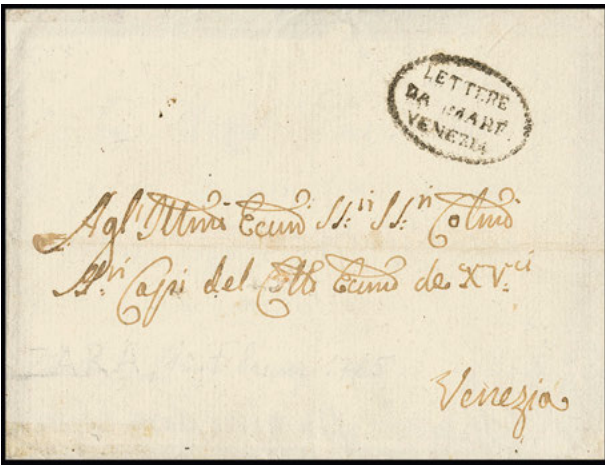 LETTERE
DA MARE
VENEZIA
Agl' Illmi Eccmi SS:ri SS:ri Colmi
S:ri Capi del Ecc de XV:ci
Venezia
ZARA